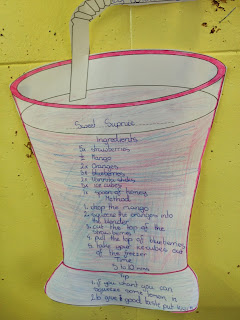 Sweet Suprise
Ingredients
5x strawberries
1x Mango
2x Oranges
5x blueberries
1x Vannila slides
5x ice cubes
1x spoon of honey
Method
1. chop the mango
2. squeeze the oranges into
the blender
3. put the top of the
strawberries
4. pull the top of blueberries
5. take your icecubes out
of the freezer
Time
5 to 10 mins
Tip
1. if you whant you can
squeeze some lemon in
to give it good taste put